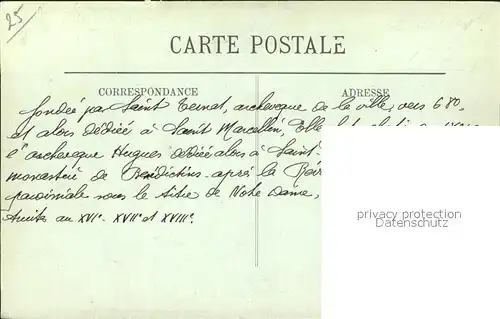 25
CARTE POSTALE
CORRESPONDANCE
ADRESSE
fondée par Saint Ternat, archeveque de la ville, vers 680,
et alors dédiée à Saint Marcellin, Elle
l'archeveque Hugues dédiée alors à Saint
monastère de Bénédictins après la
paroissiale sous le titre de Notre Dame,
au XVIe - XVIIe et XVIIIe.
privacy protection
watermark